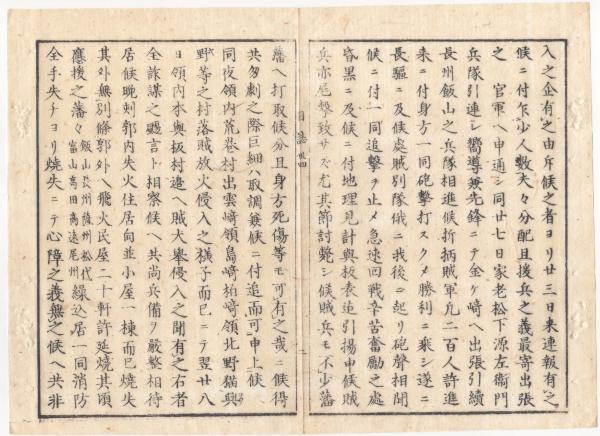 入之企有之由斥候之者ヨリ廿三日来連報有之
候ニ付乍少人数夫々分配且援兵之義最寄出張
之 官軍ヘ申通シ同廿七日家老松下源左衛門
兵隊引連シ嚮導兼先鋒ニテ金ケ崎ヘ出張引續
長州飯山之兵隊相進候折柄賊軍凡二百人許進
来ニ付身方一同砲撃打スクメ勝利ニ乗シ遂ニ
長驅ニ及候處賊別隊俄ニ我後ニ起リ砲聲相聞
候ニ付一同追撃ヲ止メ急速回戦辛苦奮勵之處
昏黒ニ及候ニ付地理見計與板表迄引揚申候賊
兵亦尾撃致サス尤其節討斃シ候賊兵モ不少藩
日誌 四
藩ヘ打取候分且身方死傷等モ可有之哉ニ候得
共匆劇之際巨細ハ取調兼候ニ付追而可申上候
同夜領内荒巻村出雲崎領島崎柏崎領北野猫興
野等之村落賊放火侵入之様子而已ニテ翌廿八
日領内本與板村邉ヘ賊大擧侵入之聞有之右者
全詐謀之颺言ト相察候ヘ共尚兵備ヲ嚴整相待
居候晩刺郭内失火住居向並小屋一棟而已燒失
其外無別條郭外ヘ飛火民屋二十軒許延燒其頃
應援之藩々飯山長州薩州松代富山高田高遠尾州繰込居一同消防
全手失チヨリ燒失ニテ心障之義無之候ヘ共非